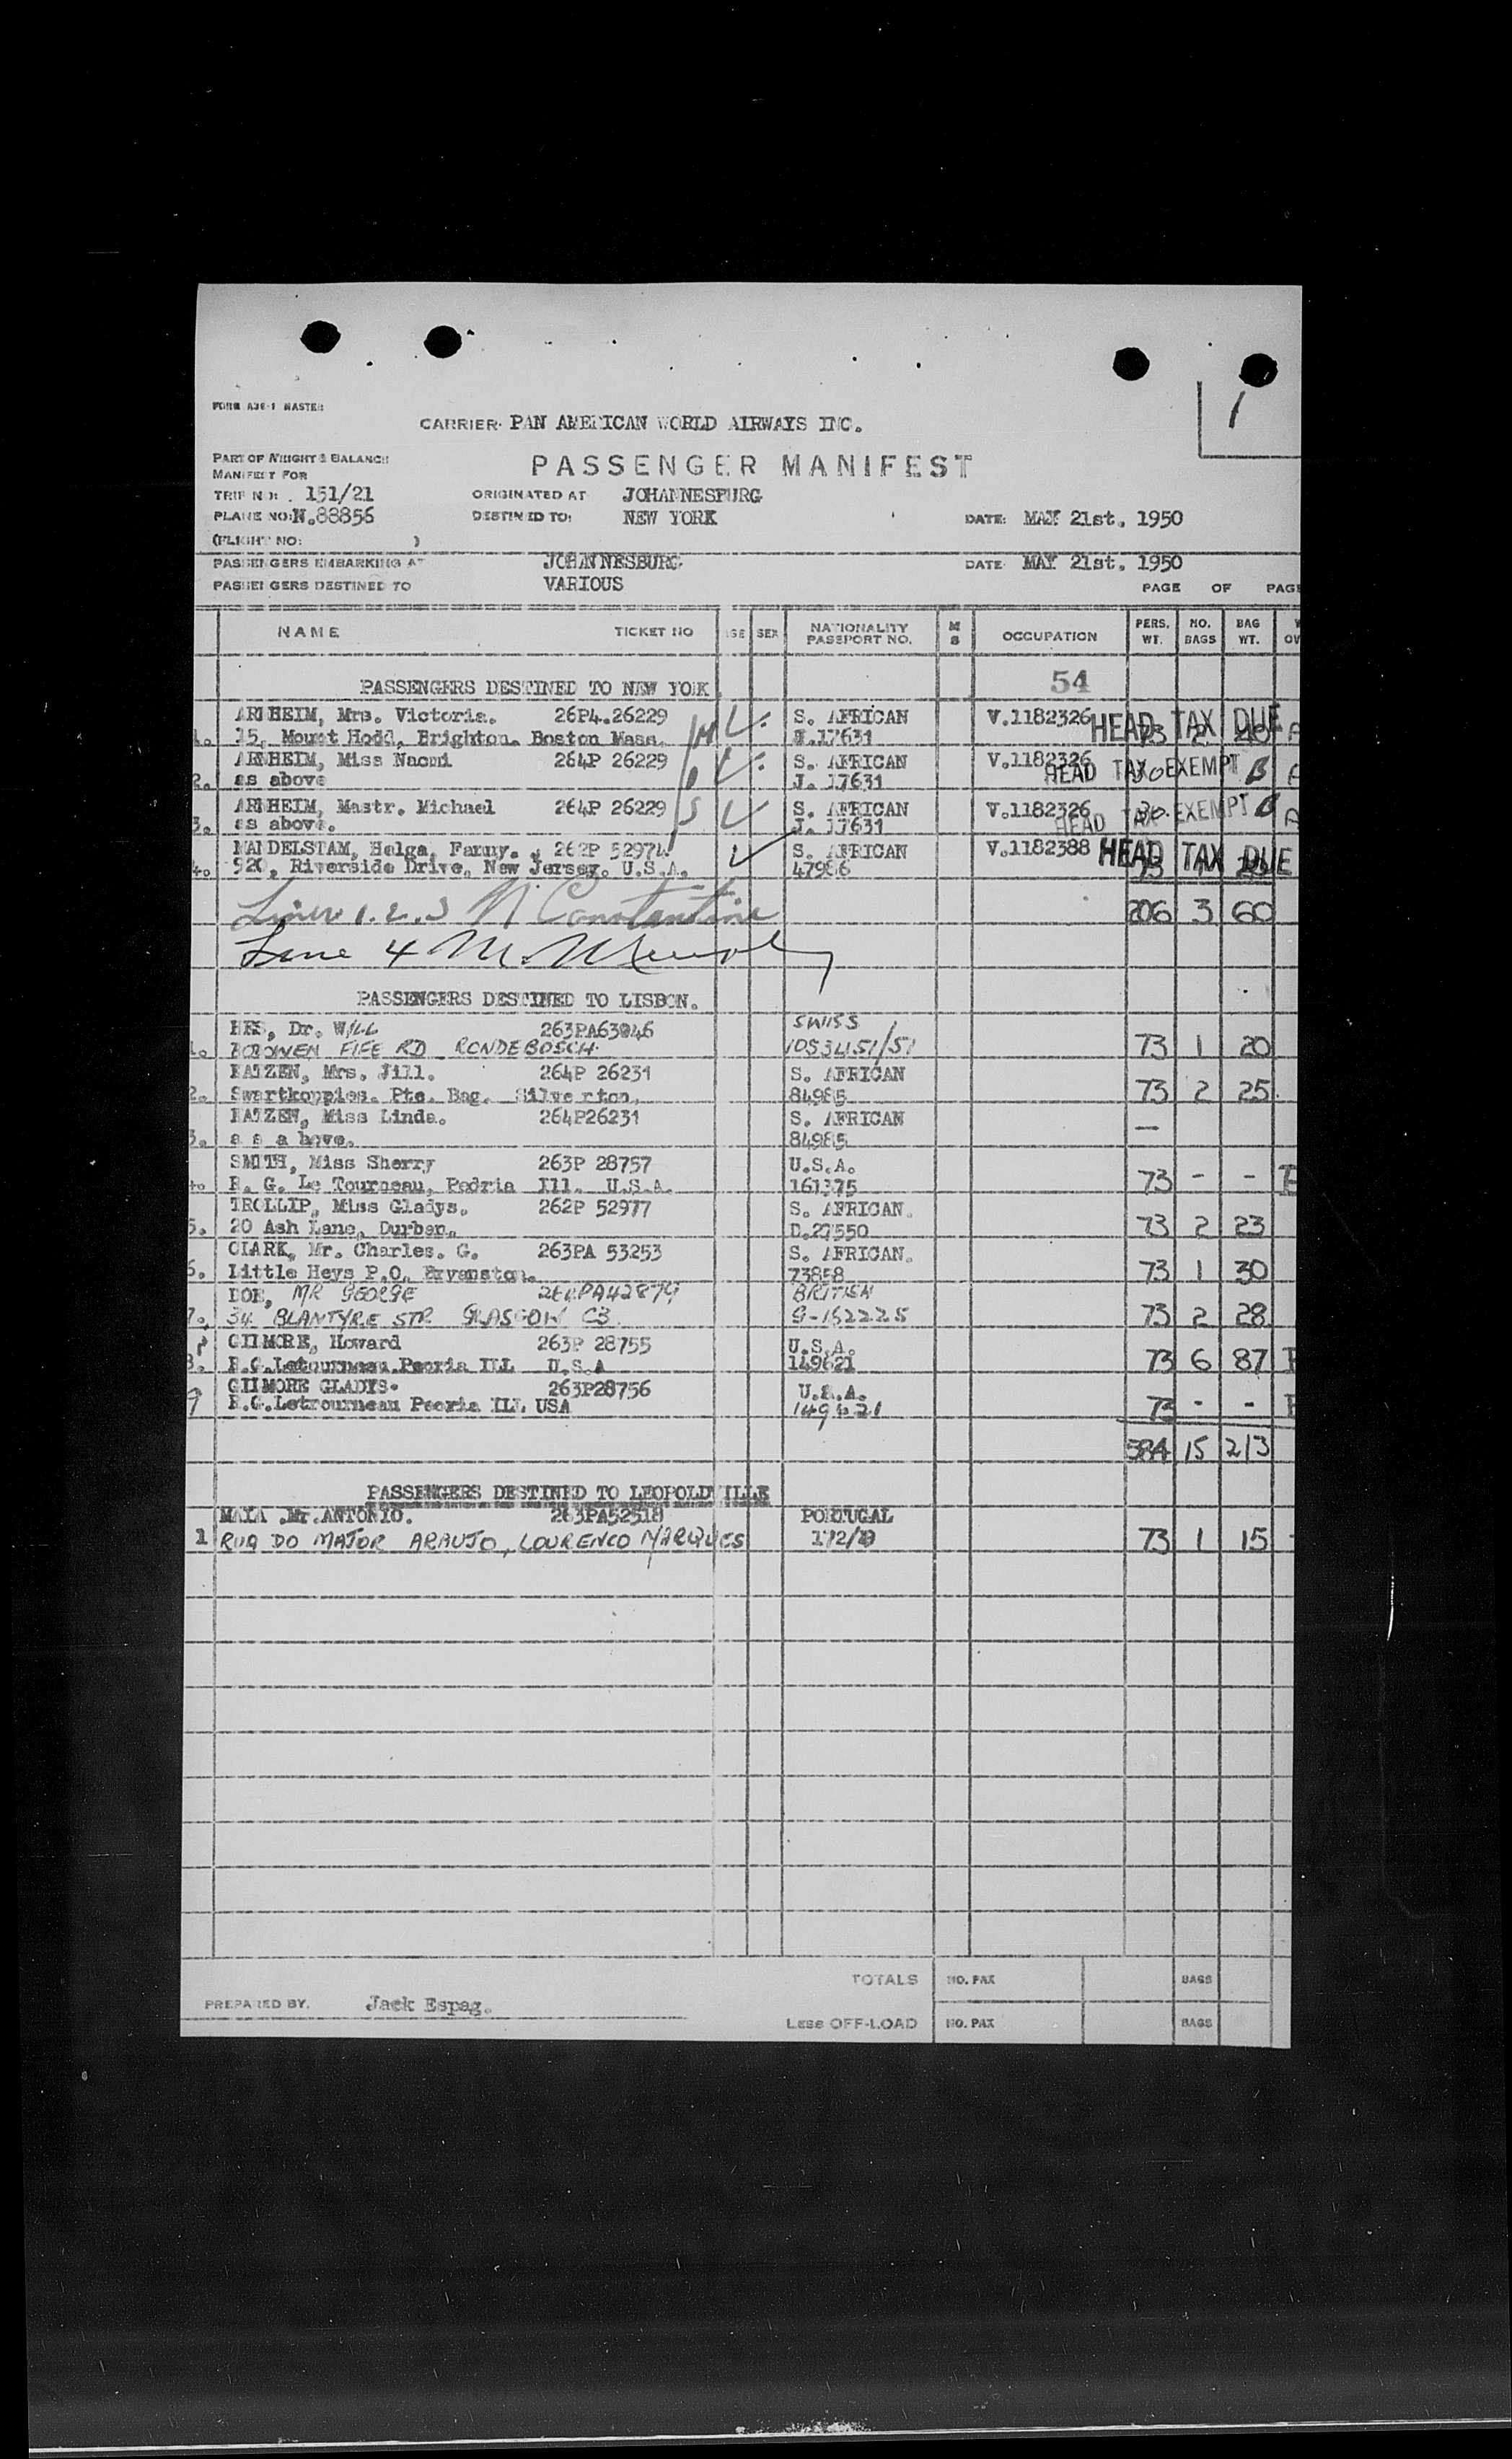 1
FORM A36-1 MASTER
CARRIER: PAN AMERICAN WORLD AIRWAYS INC.
PART OF WEIGHT & BALANCE
PASSENGER MANIFEST
MANIFEST FOR
TRIP NO: 151/21 ORIGINATED AT JOHANNESBURG
PLANE NO: N.88856 DESTINED TO: NEW YORK DATE: MAY 21st. 1950
(FLIGHT NO: )
PASSENGERS EMBARKING AT JOHANNESBURG DATE: MAY 21st. 1950
PASSENGERS DESTINED TO VARIOUS PAGE OF PAGE
NAME TICKET NO AGE SEX NATIONALITY PASSPORT NO. M S OCCUPATION PERS. WT. NO. BAGS BAG WT.
PASSENGERS DESTINED TO NEW YORK 54
ARNHEIM, Mrs. Victoria. 26P4.26229 S. AFRICAN V.1182326 HEAD TAX DUE
1. 15, Mount Hodd, Brighton. Boston Mass. J.17631 73 2 40
ARNHEIM, Miss Naomi 264P 26229 S. AFRICAN V.1182326
2. as above J. 17631 HEAD TAX EXEMPT B
ARNHEIM, Mastr. Michael 264P 26229 S. AFRICAN V.1182326 30
3. as above. J. 17631 HEAD TAX EXEMPT
MANDELSTAM, Helga, Fanny. 262P 52974 S. AFRICAN V.1182388 HEAD TAX DUE
4. 920, Riverside Drive, New Jersey. U.S.A. 47986 73 1
Lines 1.2.3 N Constantine 206 3 60
Line 4 M.
PASSENGERS DESTINED TO LISBON.
HES, Dr. WILL 263PA63046 SWISS
1. BOWEN FIFE RD RONDEBOSCH. 73 1 20
KATZEN, Mrs. Jill. 264P 26231 S. AFRICAN
2. Swartkoppies. Pte. Bag. Silverton. 84985 73 2 25
KATZEN, Miss Linda. 264P26231 S. AFRICAN
3. as a bove. 84985 —
SMITH, Miss Sherry 263P 28757 U.S.A.
4. R. G. Le Tourneau, Pedria Ill. U.S.A. 161375 73 - -
TROLLIP, Miss Gladys. 262P 52977 S. AFRICAN.
5. 20 Ash Lane, Durban. D.27550 73 2 23
CLARK, Mr. Charles. G. 263PA 53253 S. AFRICAN.
6. Little Heys P.O. Bryanston. 73858 73 1 30
DOE, MR GEORGE 264PA42879 BRITISH
7. 34 BLANTYRE STR GLASGOW C3. G-152225 73 2 28
GILMORE, Howard 263P 28755 U.S.A.
8. R.G.Letourneau.Peoria ILL U.S.A 149621 73 6 87
GILMORE GLADYS. 263P28756 U.S.A.
9 R.G.Letrourneau Peoria ILL USA 149621 73 - -
584 15 213
PASSENGERS DESTINED TO LEOPOLDVILLE
MAIA .Mr.ANTONIO. 263PA52518 PORTUGAL
1 RUA DO MAJOR ARAUJO, LOURENCO MARQUES 73 1 15
TOTALS NO. PAX BAGS
PREPARED BY. Jack Espag.
Less OFF-LOAD NO. PAX BAGS